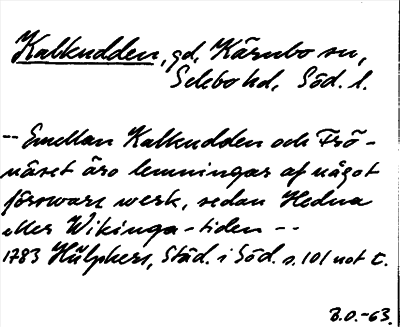 Kalkudden, gd, Kärnbo sn,
Selebo hd, Söd. l.
-- Emellan Kalkudden och Frö-
näset äro lemningar af något
förswars werk, sedan Hedna
eller Wikinga-tiden --
1783 Hülphers, Städ. i Söd. s. 101 not t.
B.O.-63.